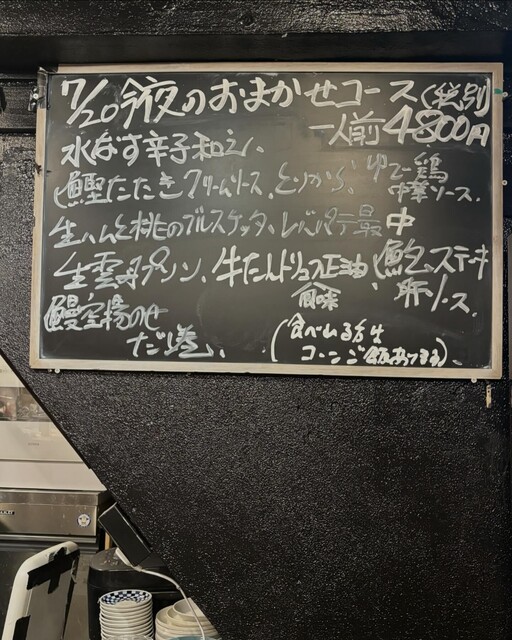 7/20 今夜のおまかせコース(税別)
一人前4800円
水なす辛子和え、
鰹たたきクリームソース、とりから、ゆで鶏
中華ソース、
生ハムと桃のブルスケッタ、レバパテ最中
生雲丹プリン、牛たんトリュフ正油、鮑ステーキ
風味 肝ソース、
鰻空揚のせ
だし巻、
(食べれる方生
コーンご飯あります)、